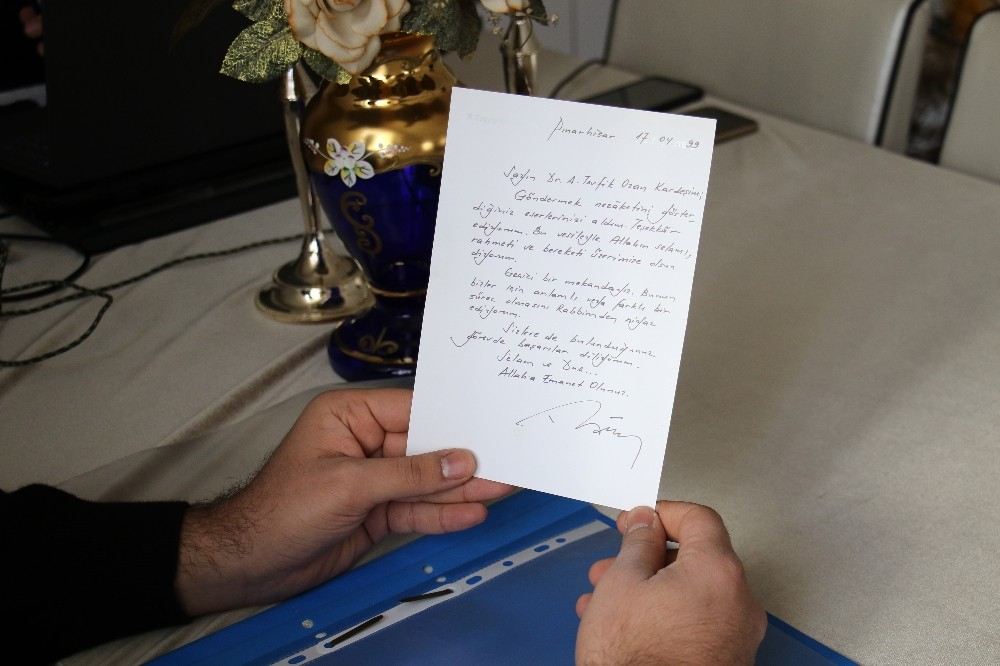 Pınarhisar 17.04.99
Sayın Dr. A. Tevfik Ozan Kardeşim;
Göndermek nezâketini göster-
diğiniz eserlerinizi aldım. Teşekkür
ediyorum. Bu vesileyle Allahın selamı,
rahmeti ve bereketi üzerimize olsun
diyorum.
bir mekandayız. Bunun
bizler için anlamlı, veya farklı bir
süreç olmasını Rabbimden niyaz
ediyorum.
Sizlere de bulunduğunuz
görevde başarılar diliyorum.
Selam ve Dua...
Allaha Emanet Olunuz.